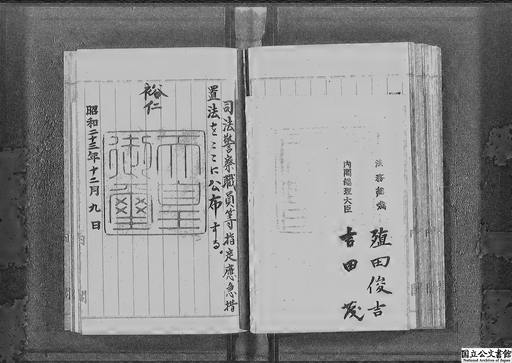 司法警察職員等指定應急措
置法をここに公布する。
裕仁
天皇
御璽
昭和二十三年十二月九日
法務総裁
殖田俊吉
内閣総理大臣
吉田茂
国立公文書館
National Archives of Japan